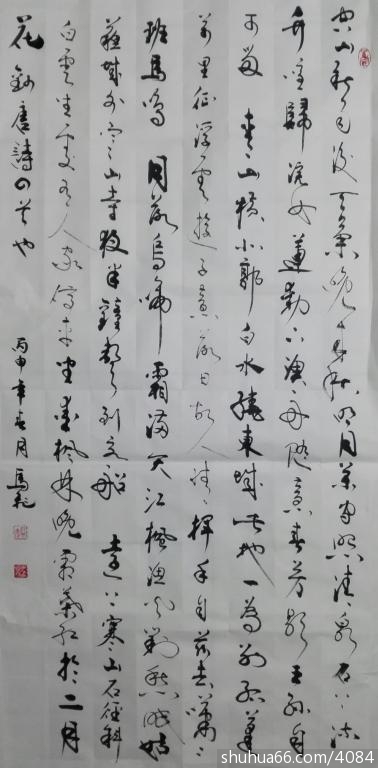 空山新雨後天氣晚來秋明月松間照清泉石上流
竹喧歸浣女蓮動下漁舟隨意春芳歇王孫自
可留 青山橫北郭白水繞東城此地一為別孤蓬
萬里征浮雲遊子意落日故人情揮手自茲去蕭蕭
班馬鳴 月落烏啼霜滿天江楓漁火對愁眠姑
蘇城外寒山寺夜半鐘聲到客船 遠上寒山石徑斜
白雲生處有人家停車坐愛楓林晚霜葉紅於二月
花 唐詩四首也 丙申年春月馬
shuhua66.com/4084